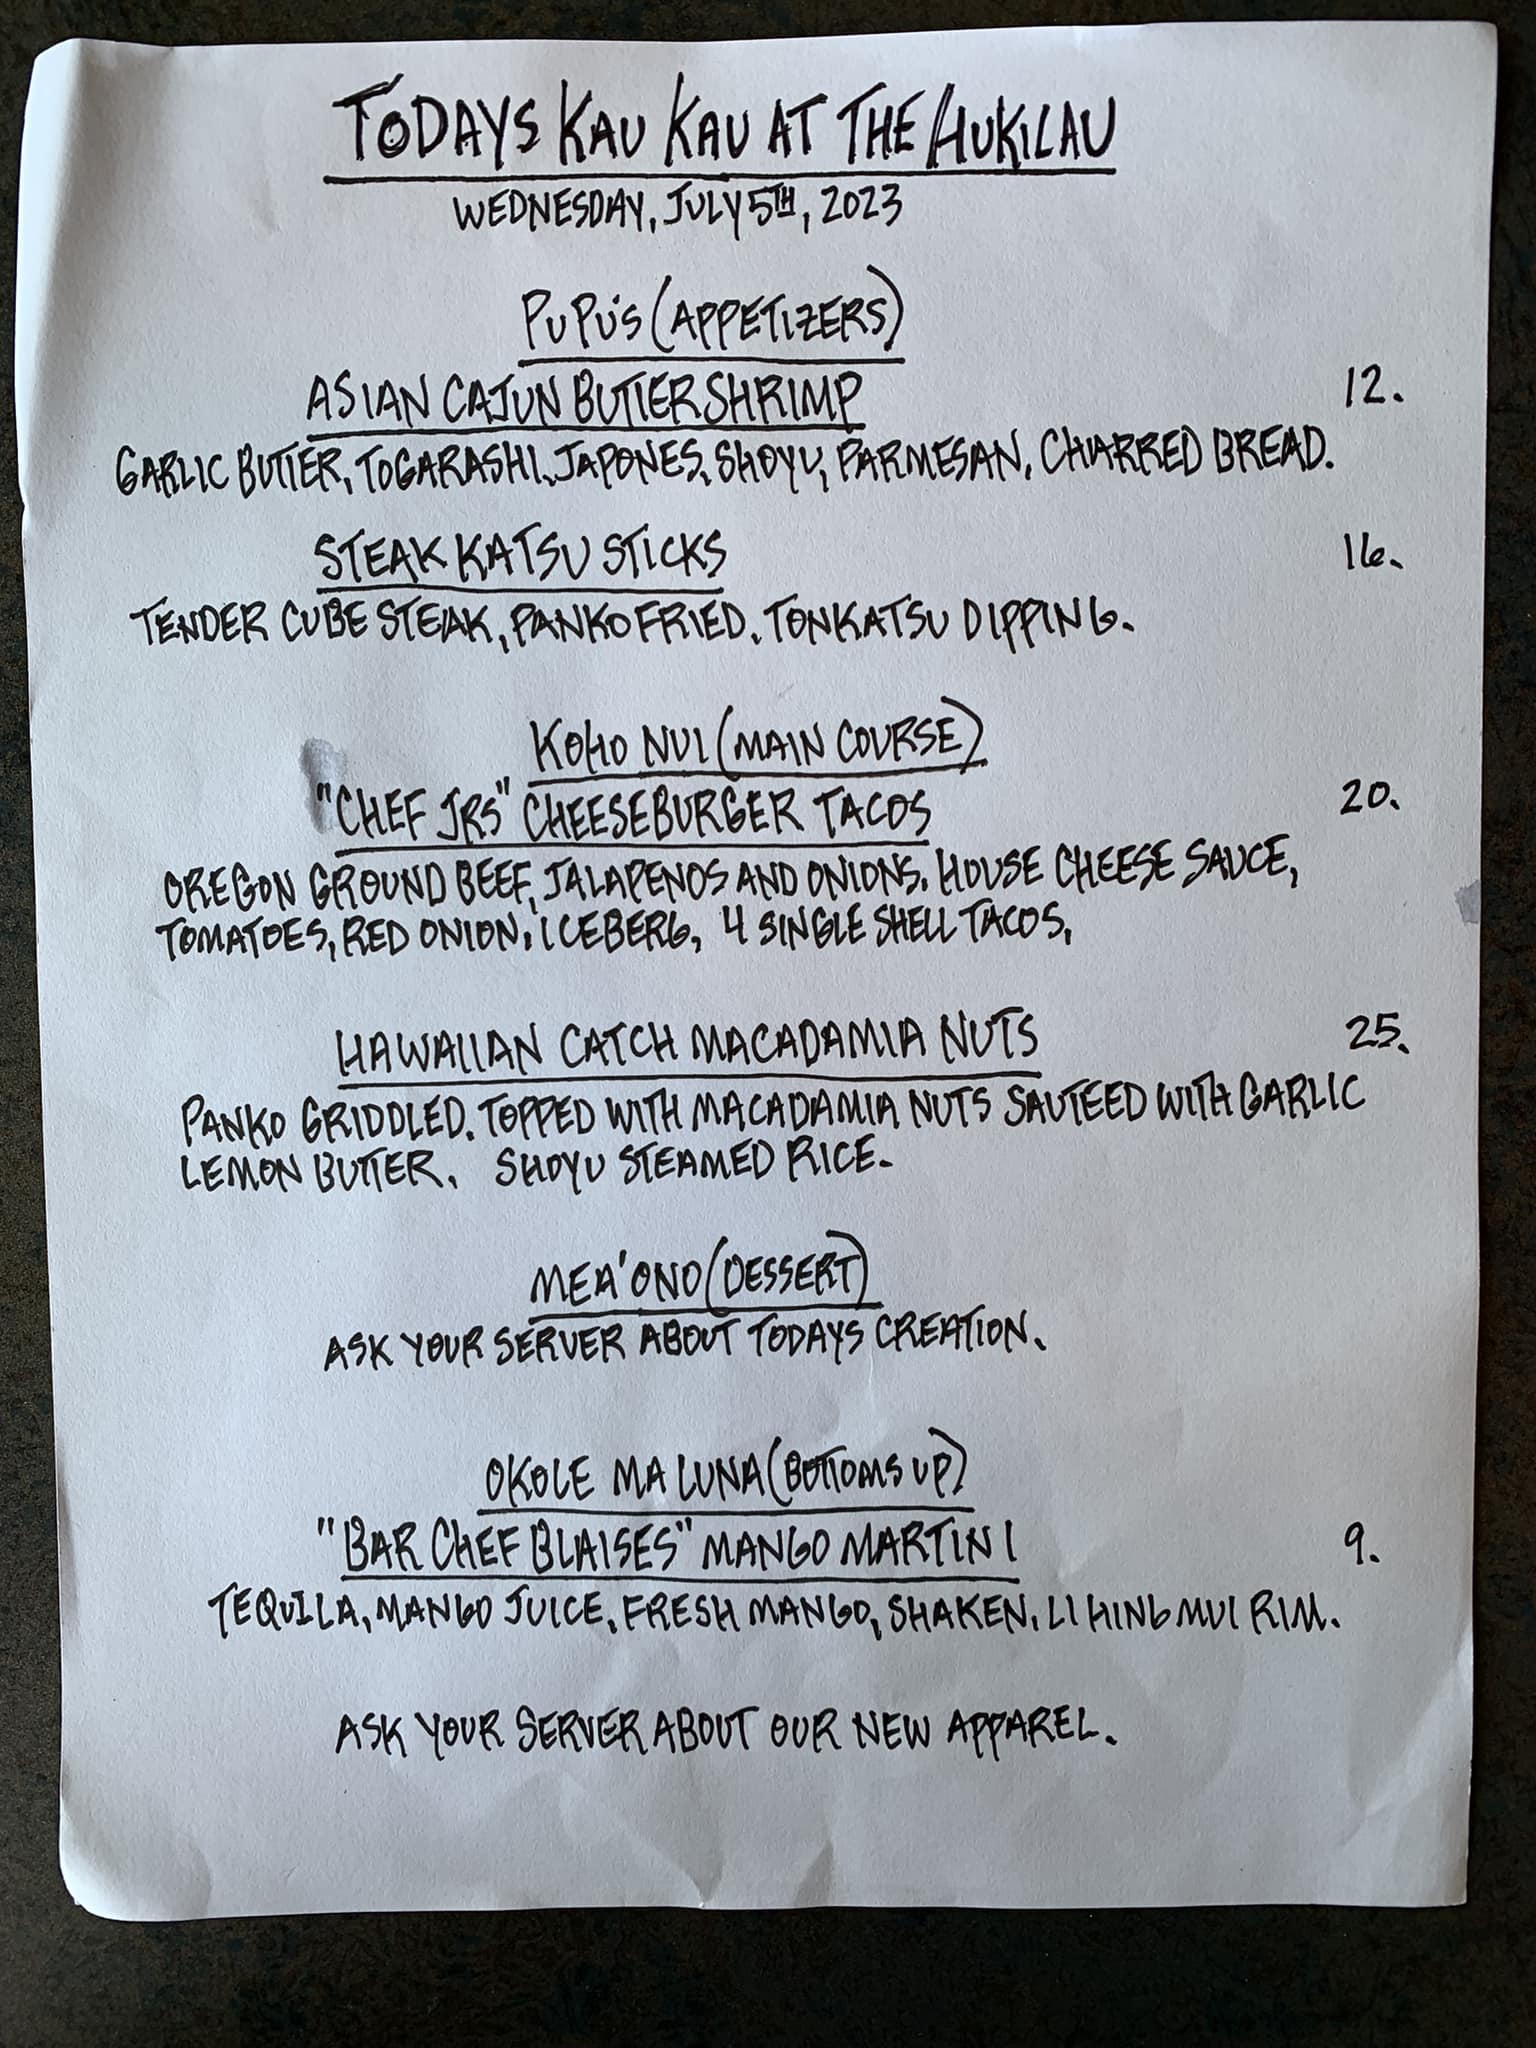 TODAYS KAU KAU AT THE HUKILAU
WEDNESDAY, JULY 5TH, 2023
PUPU'S (APPETIZERS)
ASIAN CAJUN BUTTER SHRIMP 12.
GARLIC BUTTER, TOGARASHI, JAPONES, SHOYU, PARMESAN, CHARRED BREAD.
STEAK KATSU STICKS 16.
TENDER CUBE STEAK, PANKO FRIED. TONKATSU DIPPING.
KOHO NUI (MAIN COURSE)
"CHEF JRS" CHEESEBURGER TACOS 20.
OREGON GROUND BEEF, JALAPENOS AND ONIONS. HOUSE CHEESE SAUCE,
TOMATOES, RED ONION, ICEBERG, 4 SINGLE SHELL TACOS,
HAWAIIAN CATCH MACADAMIA NUTS 25.
PANKO GRIDDLED. TOPPED WITH MACADAMIA NUTS SAUTEED WITH GARLIC
LEMON BUTTER. SHOYU STEAMED RICE.
MEA'ONO (DESSERT)
ASK YOUR SERVER ABOUT TODAYS CREATION.
OKOLE MA LUNA (BOTTOMS UP)
"BAR CHEF BLAISES" MANGO MARTINI 9.
TEQUILA, MANGO JUICE, FRESH MANGO, SHAKEN. LI HING MUI RIM.
ASK YOUR SERVER ABOUT OUR NEW APPAREL.